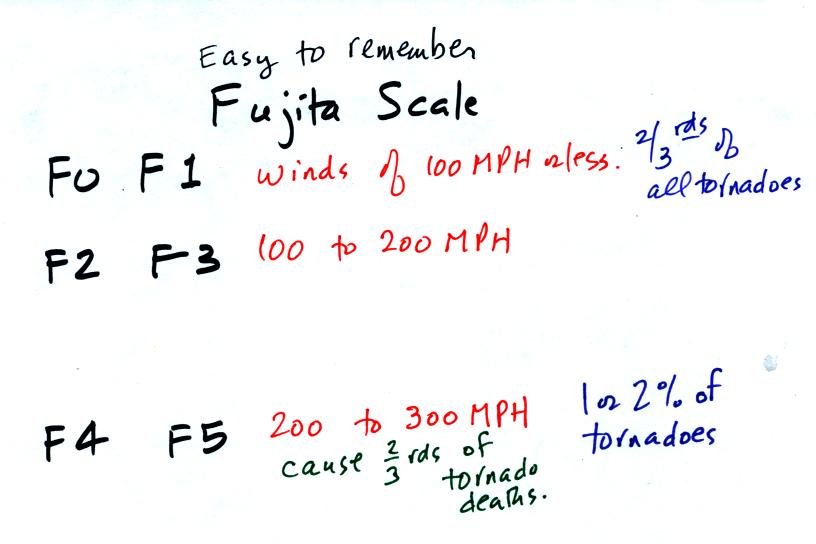 Easy to remember
Fujita Scale
F0 F1 winds of 100 MPH or less. 2/3 rds of
all tornadoes
F2 F3 100 to 200 MPH
F4 F5 200 to 300 MPH 1 or 2% of
tornadoes
cause 2/3 rds of
tornado
deaths.